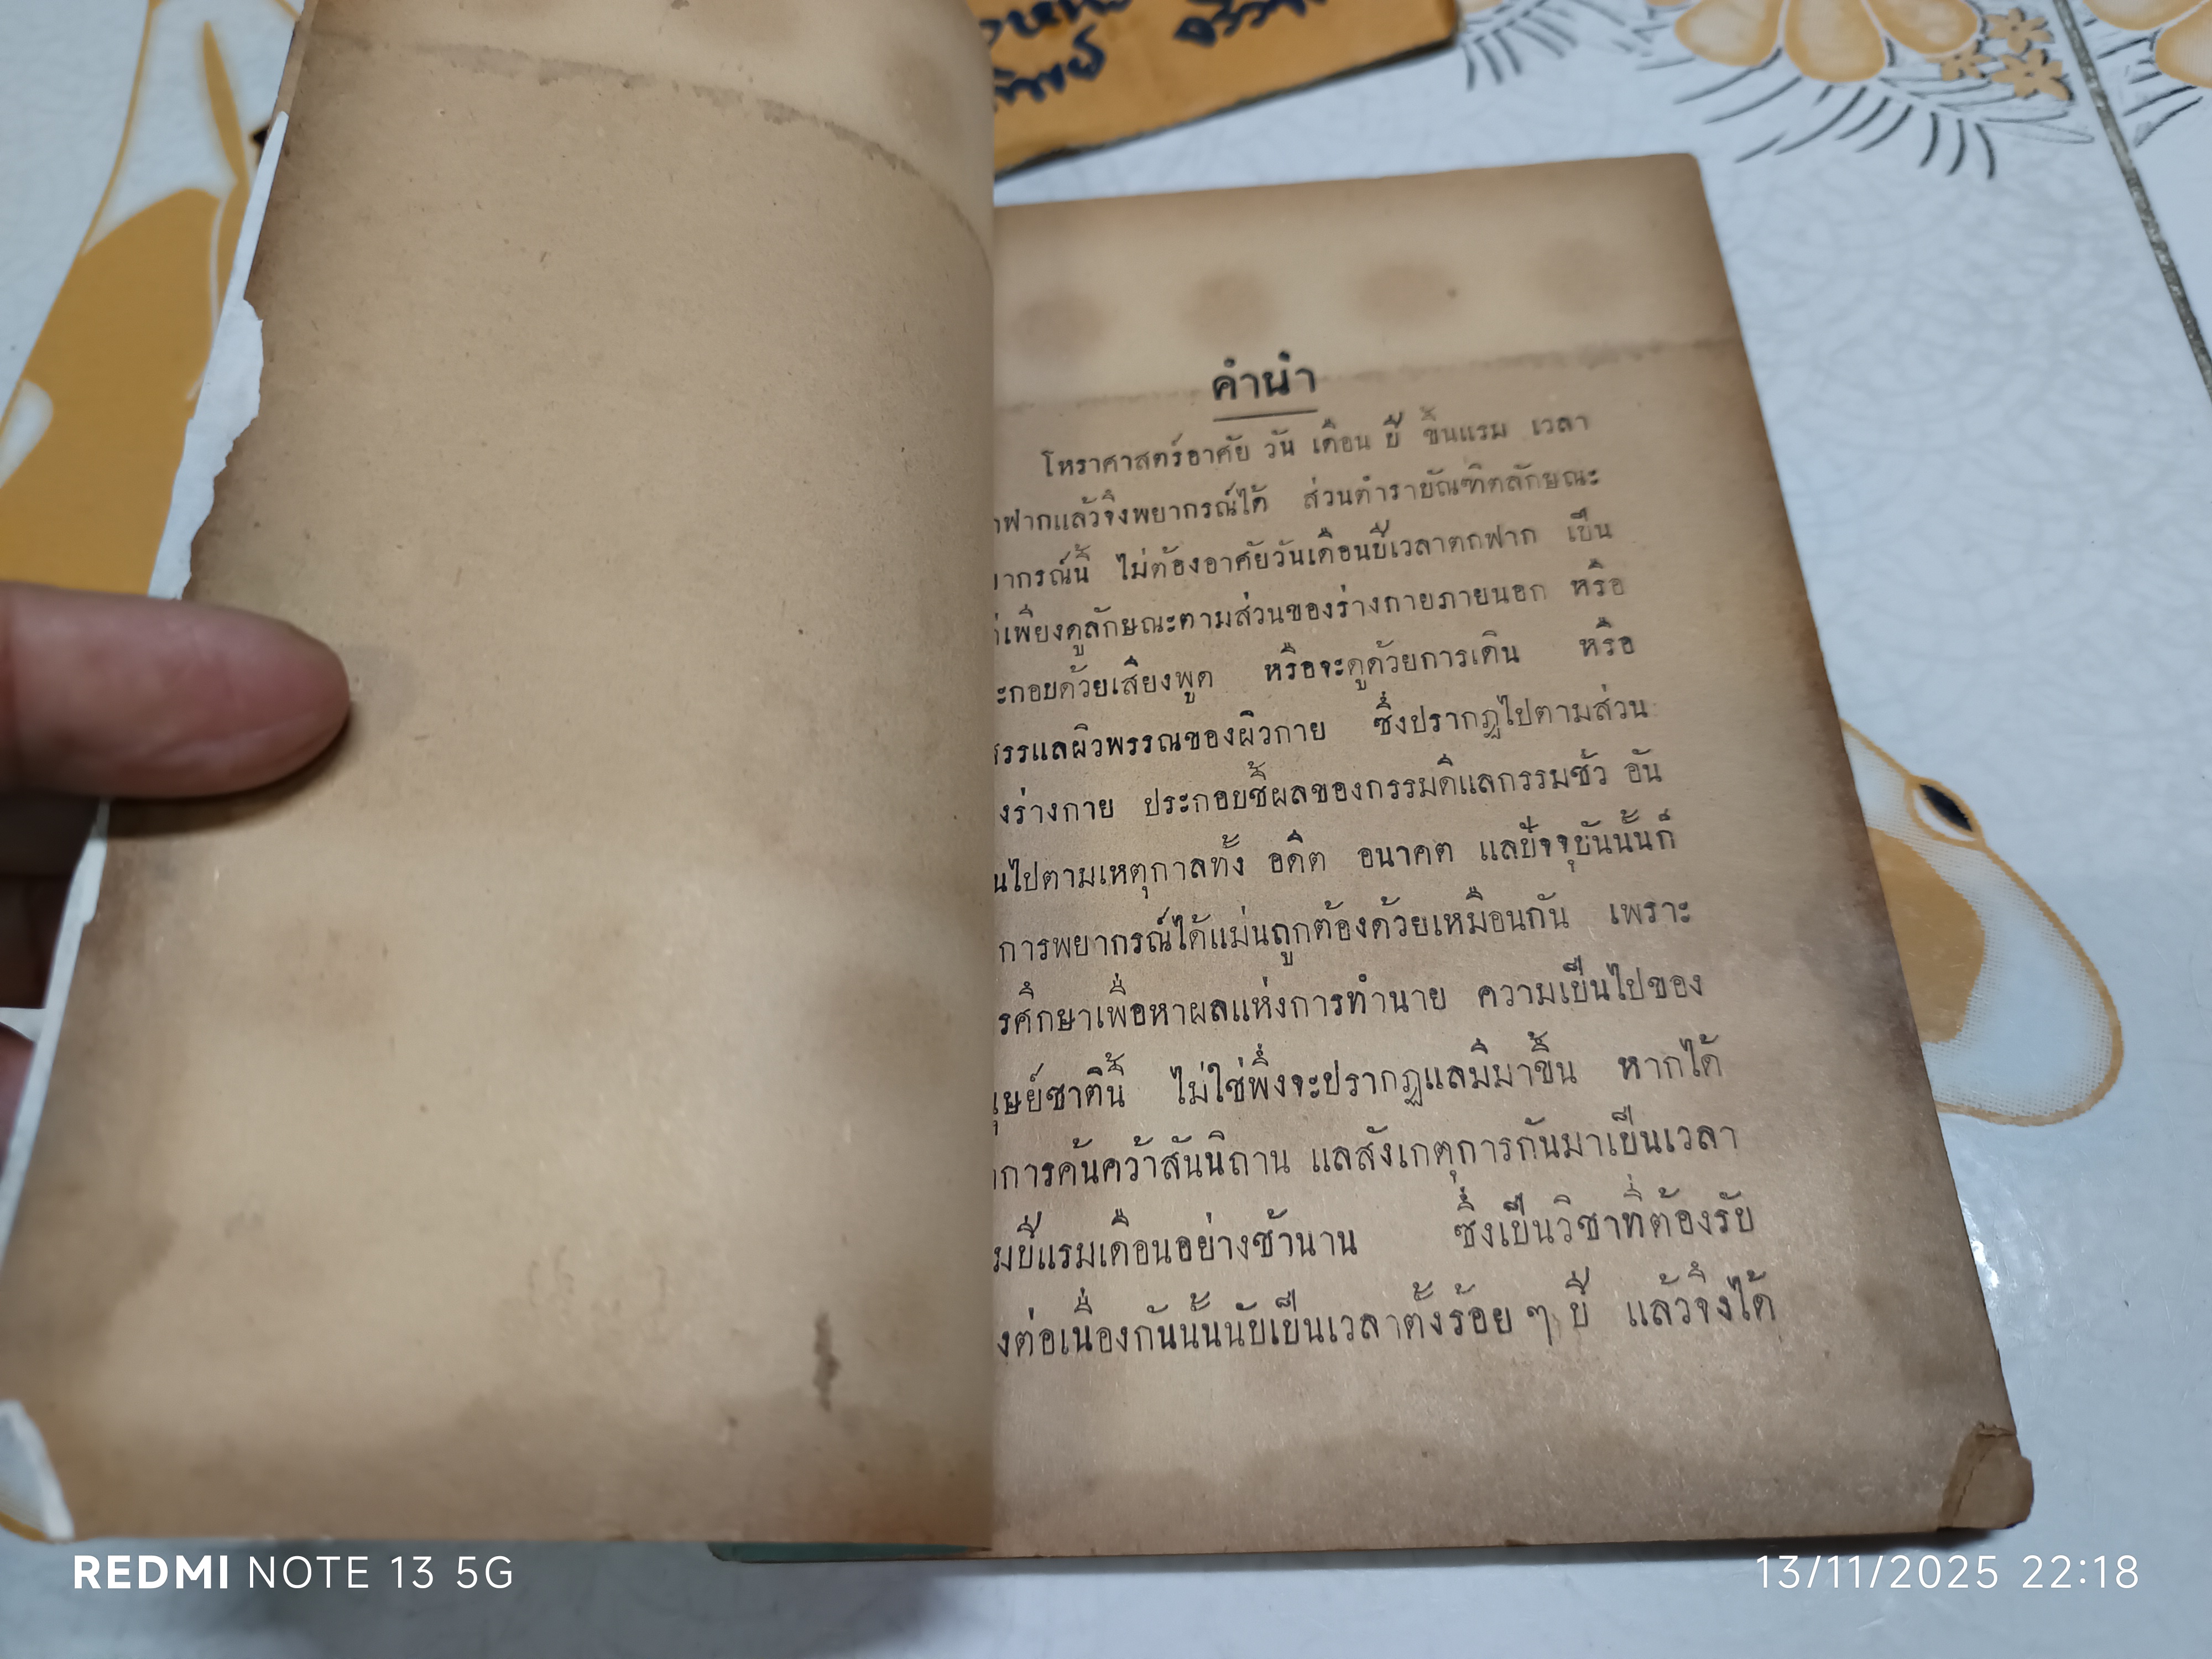 คำนำ
โหราศาสตร์อาศัย วัน เดือน ปี ขึ้นแรม เวลา
ฟากแล้วจึงพยากรณ์ได้ ส่วนตำราบัณฑิตลักษณะ
ากรณ์นี้ ไม่ต้องอาศัยวันเดือนปีเวลาตกฟาก เป็น
เพียงดูลักษณะตามส่วนของร่างกายภายนอก หรือ
ะกอบด้วยเสียงพูด หรือจะดูด้วยการเดิน หรือ
รรแลผิวพรรณของผิวกาย ซึ่งปรากฏไปตามส่วน
งร่างกาย ประกอบชี้ผลของกรรมดีแลกรรมชั่ว อัน
นไปตามเหตุกาลทั้ง อดีต อนาคต แลปัจจุบันนั้นก็
การพยากรณ์ได้แม่นถูกต้องด้วยเหมือนกัน เพราะ
รศึกษาเพื่อหาผลแห่งการทำนาย ความเป็นไปของ
ุษย์ชาตินี้ ไม่ใช่พึ่งจะปรากฏแลมีมาขึ้น หากได้
การค้นคว้าสันนิถาน แลสังเกตุการกันมาเป็นเวลา
มปีแรมเดือนอย่างช้านาน ซึ่งเป็นวิชาที่ต้องรับ
งต่อเนื่องกันนั้นนับเป็นเวลาตั้งร้อย ๆ ปี แล้วจึงได้
REDMI NOTE 13 5G
13/11/2025 22:18